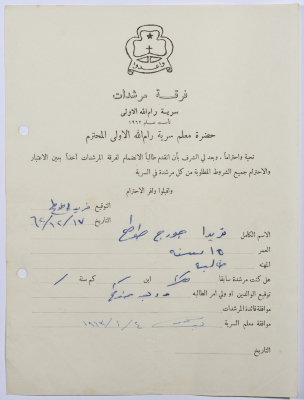 وأعدوا
فرقة مرشدات
سرية رام الله الاولى
تأسست سنة ١٩٦٢
حضرة معلم سرية رام الله الاولى المحترم
تحية واحتراماً، وبعد لي الشرف بأن اتقدم طالبة الانضمام لفرقة المرشدات آخذاً بعين الاعتبار
والاحترام جميع الشروط المطلوبة من كل مرشدة في السرية
واقبلوا وافر الاحترام
التوقيع
التاريخ ٦٢/١٢/١٧
الاسم الكامل فريدا جورج
العمر ١٥ سنة
المهنة طالبة
هل كنت مرشدة سابقا كلا اين / كم سنة /
توقيع الوالدين او ولي امر الطالبة
موافقة قائدة المرشدات
موافقة معلم السرية
التاريخ